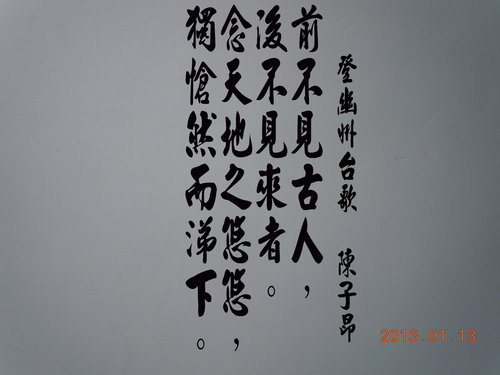 登幽州台歌 陳子昂
前不見古人，
後不見來者。
念天地之悠悠，
獨愴然而涕下。
2013.01.13